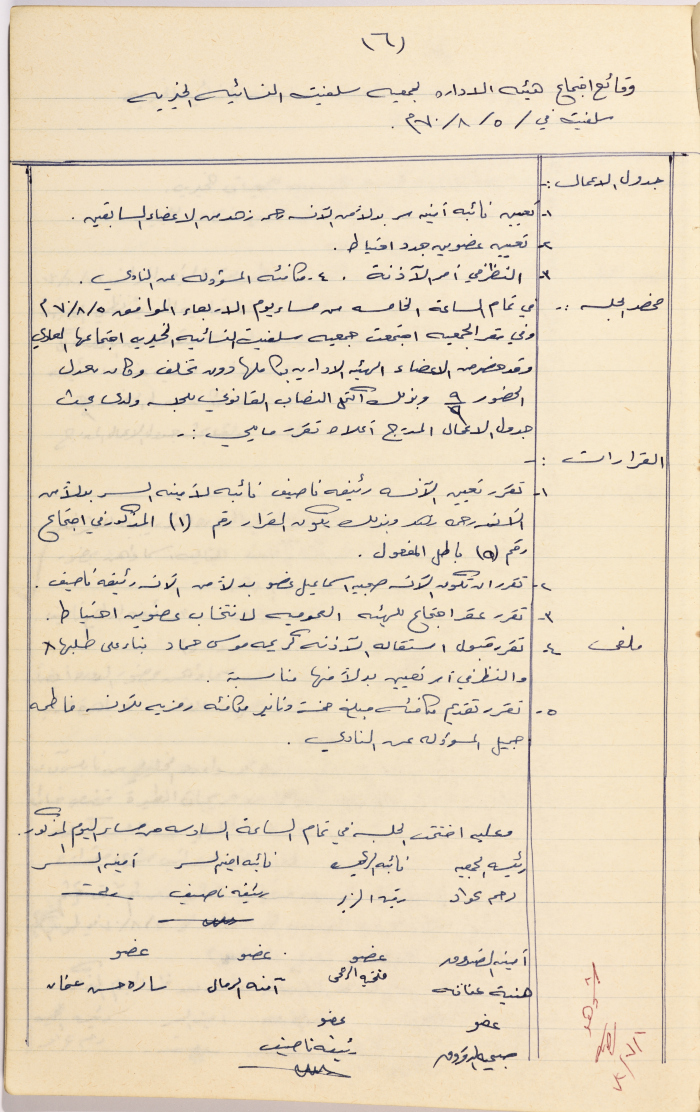 (٦)
وقائع اجتماع هيئة الادارة لجمعيه سلفيت النسائيه الخيريه
سلفيت في / ٥ / ٨ / ٧٠م.
جدول الاعمال :-
١- تعيين نائبة أمينه سر بدلاً من الآنسه رحمه زهد من الاعضاء السابقين .
٢- تعيين عضوين جدد احتياط .
٣- النظر في أمر الآذنة . ٤- مكافئه المسؤوله عن النادي .
محضر الجلسه :-
في تمام الساعة الخامسه من مساء يوم الاربعاء الموافق ٧٠/٨/٥م
وفي مقر الجمعيه اجتمعت جمعيه سلفيت النسائيه الخيريه اجتماعها العادي
وقد حضر من الاعضاء الهيئه الاداريه بكاملها دون تخلف وكان معدل
الحضور ٩/٩ وبذلك اكتمل النصاب القانوني للجلسه ولدى بحث
جدول الاعمال المدرج أعلاه تقرر ما يلي :-
القرارات :-
١- تقرر تعيين الآنسه رئيفه ناصيف نائبه لأمينه السر بدلاً من
الآنسه رحمه زهد وبذلك يكون القرار رقم (١) المذكور في اجتماع
رقم (٥) باطل المفعول .
٢- تقرر ان تكون الآنسه صبحيه اسماعيل عضو بدلاً من الآنسه رئيفه ناصيف .
٣- تقرر عقد اجتماع للهيئه العموميه لانتخاب عضوين احتياط .
ملغى
٤- تقرر قبول استقاله الآذنه كريمه موسى حماد بناء على طلبها
والنظر في أمر تعيين بدلاً منها مناسبة .
٥- تقرر تقديم مكافئه مبلغ خمسة دنانير مكافئه رمزيه للآنسه فاطمه
جميل المسؤوله عن النادي .
وعليه اختتمت الجلسه في تمام الساعة السادسه من مساء اليوم المذكور .
رئيسه الجمعيه نائبه الرئيسه نائبه امينه السر أمينه السر
عواد رئيفه ناصيف
أمينه الصندوق عضو عضو عضو
هنية عنانه فتحيه آمنه الرمال ساره حسن عفان
عضو عضو
صبحيه رئيفه ناصيف